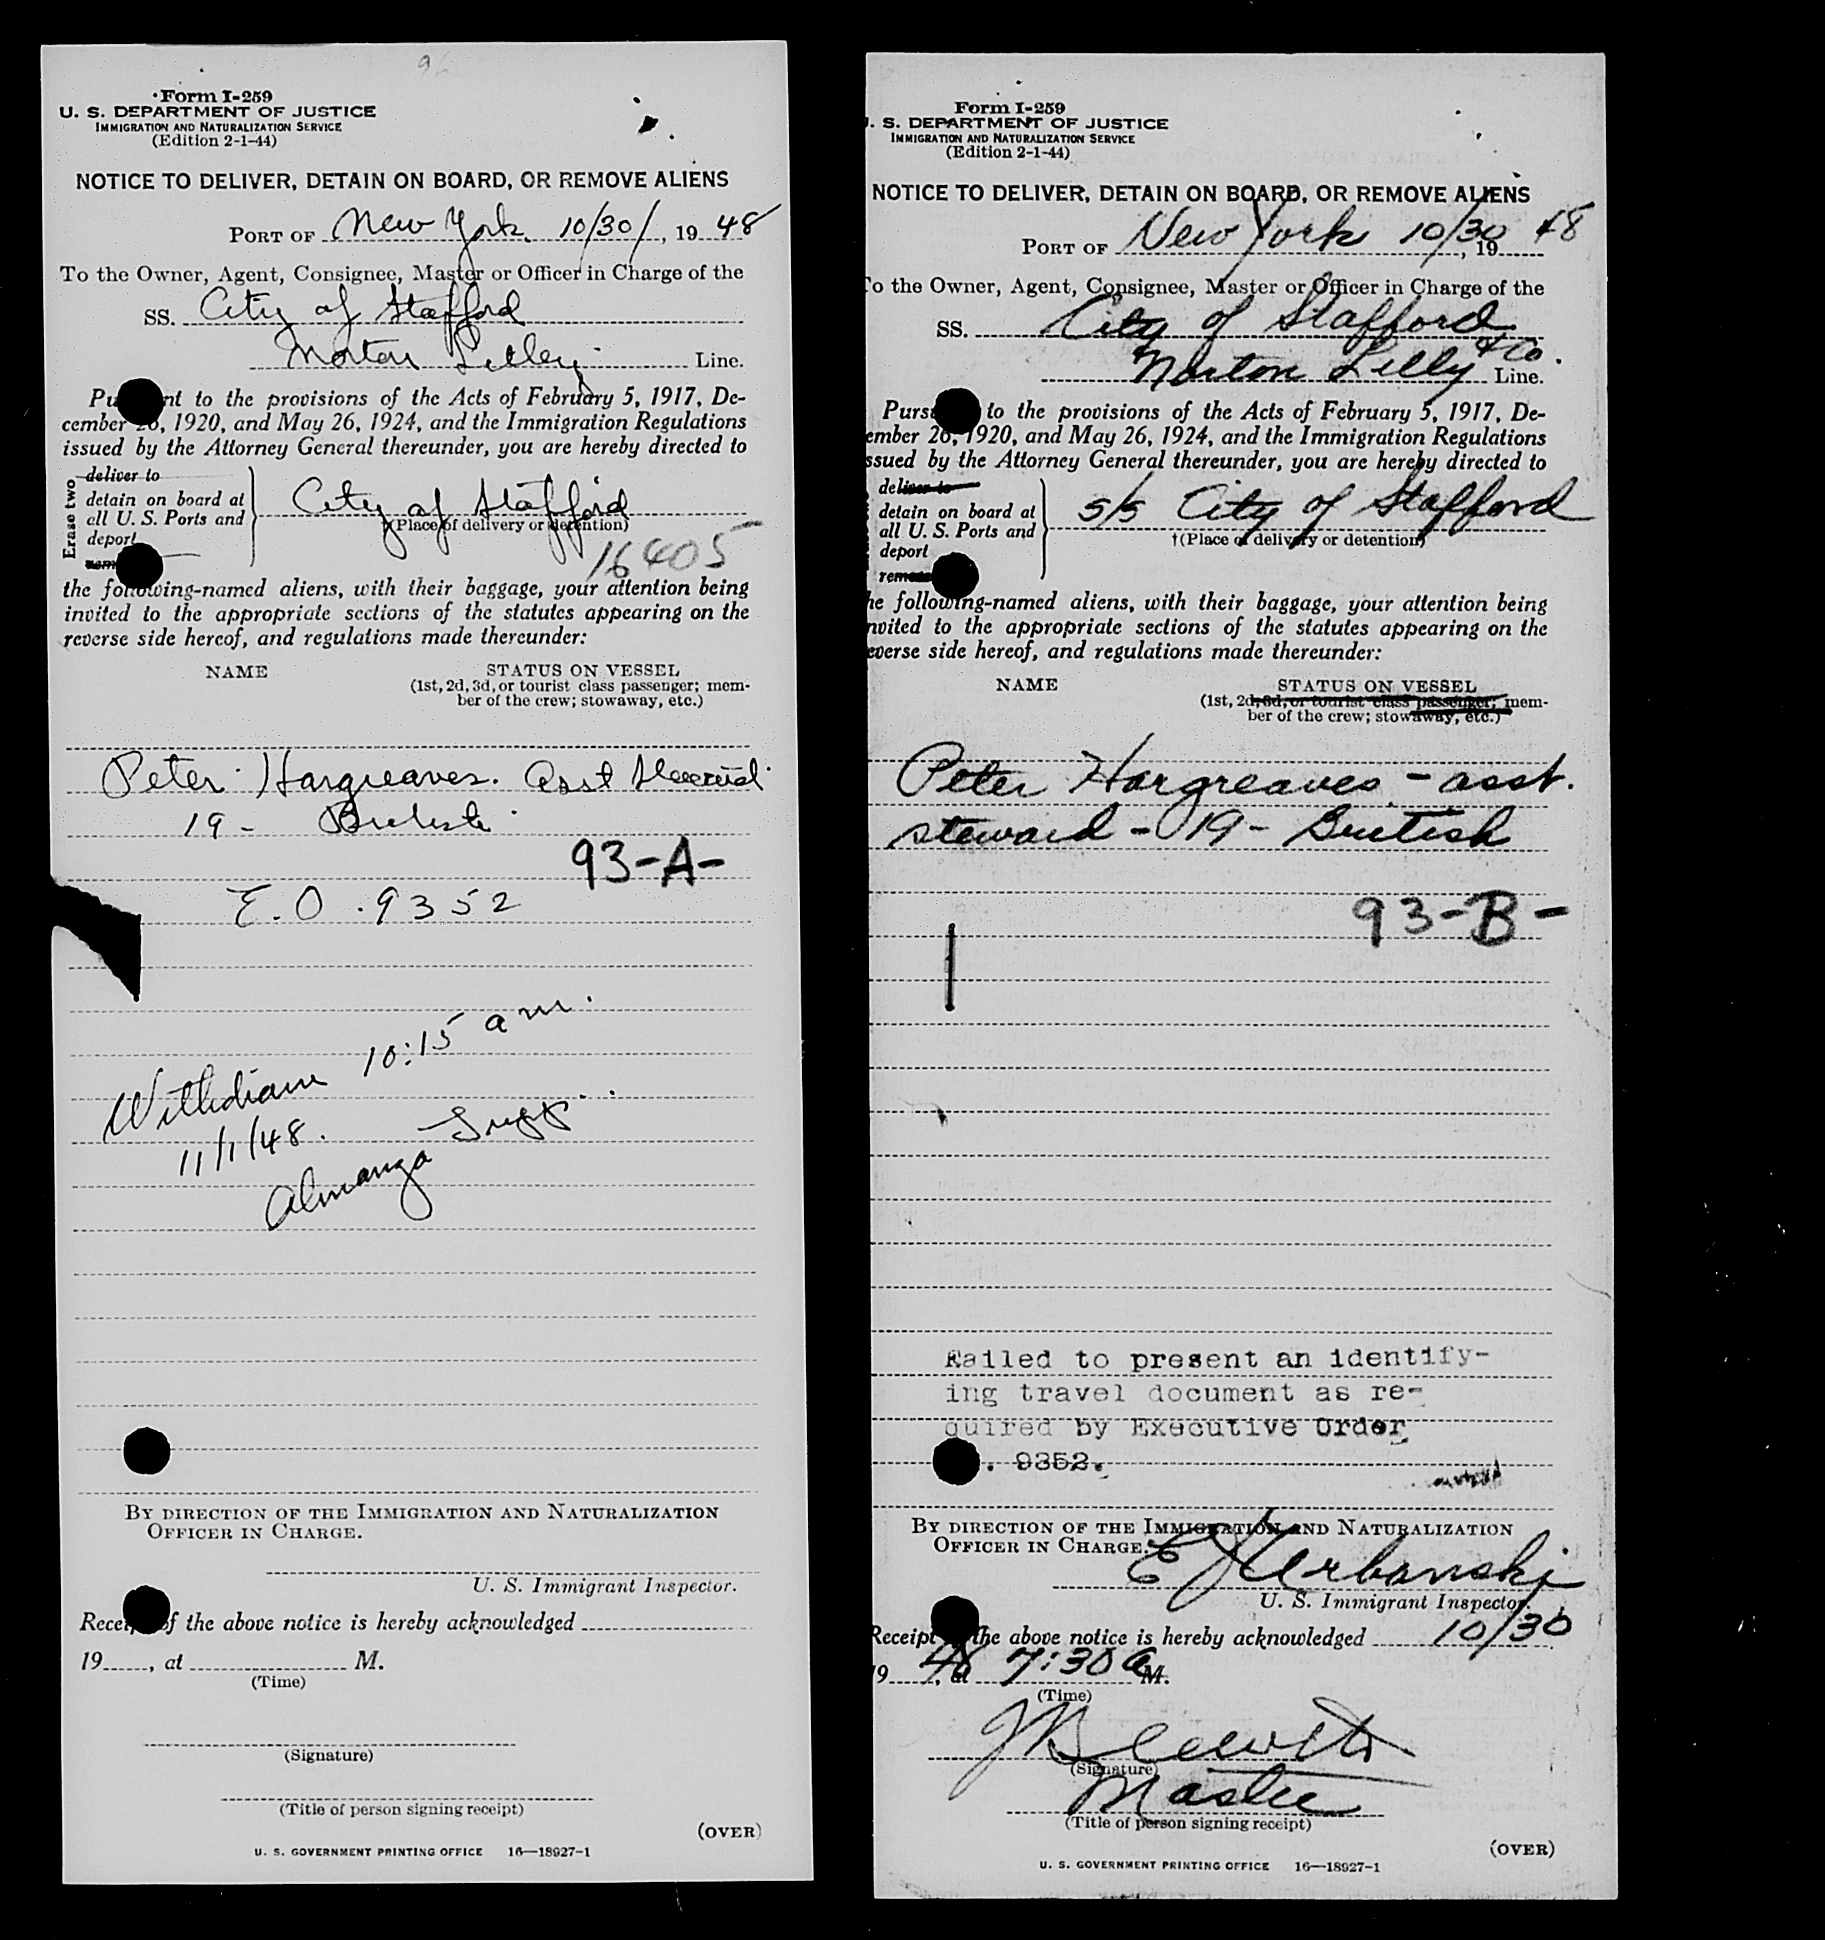 Form I-259
U. S. DEPARTMENT OF JUSTICE
IMMIGRATION AND NATURALIZATION SERVICE
(Edition 2-1-44)
NOTICE TO DELIVER, DETAIN ON BOARD, OR REMOVE ALIENS
PORT OF New York 10/30/, 19 48
To the Owner, Agent, Consignee, Master or Officer in Charge of the
SS. City of Stafford
Norton Lilley Line.
Pu nt to the provisions of the Acts of February 5, 1917, De-
cember 26, 1920, and May 26, 1924, and the Immigration Regulations
issued by the Attorney General thereunder, you are hereby directed to
Erase two
deliver to
detain on board at
all U. S. Ports and
deport
City of Stafford
†(Place of delivery or detention)
16405
the following-named aliens, with their baggage, your attention being
invited to the appropriate sections of the statutes appearing on the
reverse side hereof, and regulations made thereunder:
NAME STATUS ON VESSEL
(1st, 2d, 3d, or tourist class passenger; mem-
ber of the crew; stowaway, etc.)
Peter Hargreaves. Asst Steward
19 - British
93-A-
E.O. 9352
Withdrawn 10:15 am.
11/1/48.
By direction of the Immigration and Naturalization
Officer in Charge.
U. S. Immigrant Inspector.
Receipt of the above notice is hereby acknowledged
19 , at M.
(Time)
(Signature)
(Title of person signing receipt)
(OVER)
U. S. GOVERNMENT PRINTING OFFICE 16—18927-1
Form I-259
. S. DEPARTMENT OF JUSTICE
IMMIGRATION AND NATURALIZATION SERVICE
(Edition 2-1-44)
NOTICE TO DELIVER, DETAIN ON BOARD, OR REMOVE ALIENS
PORT OF New York 10/30, 19 48
To the Owner, Agent, Consignee, Master or Officer in Charge of the
SS. City of Stafford
Norton Lilly & Co. Line.
Purs to the provisions of the Acts of February 5, 1917, De-
ember 26, 1920, and May 26, 1924, and the Immigration Regulations
ssued by the Attorney General thereunder, you are hereby directed to
deliver to
detain on board at
all U. S. Ports and
deport
remove
S/S City of Stafford
†(Place of delivery or detention)
he following-named aliens, with their baggage, your attention being
nvited to the appropriate sections of the statutes appearing on the
everse side hereof, and regulations made thereunder:
NAME STATUS ON VESSEL
(1st, 2d, 3d, or tourist class passenger; mem-
ber of the crew; stowaway, etc.)
Peter Hargreaves - asst.
steward - 19 - British
93-B-
Failed to present an identify-
ing travel document as re-
quired by Executive Order
. 9352.
By direction of the Immigration and Naturalization
Officer in Charge.
E J Urbanski
U. S. Immigrant Inspector.
Receipt the above notice is hereby acknowledged 10/30
19 48, at 7:30 A M.
(Time)
(Signature)
Master
(Title of person signing receipt)
(OVER)
U. S. GOVERNMENT PRINTING OFFICE 16—18927-1